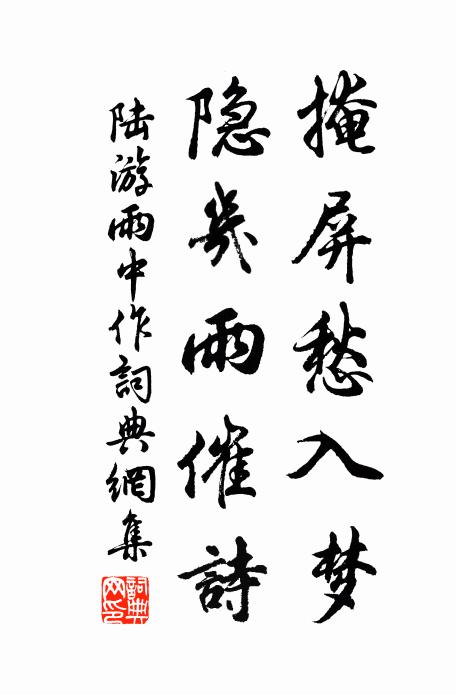 掩屏愁入梦
隐几雨催詩
陆游雨中作詞典網集
詞典网印